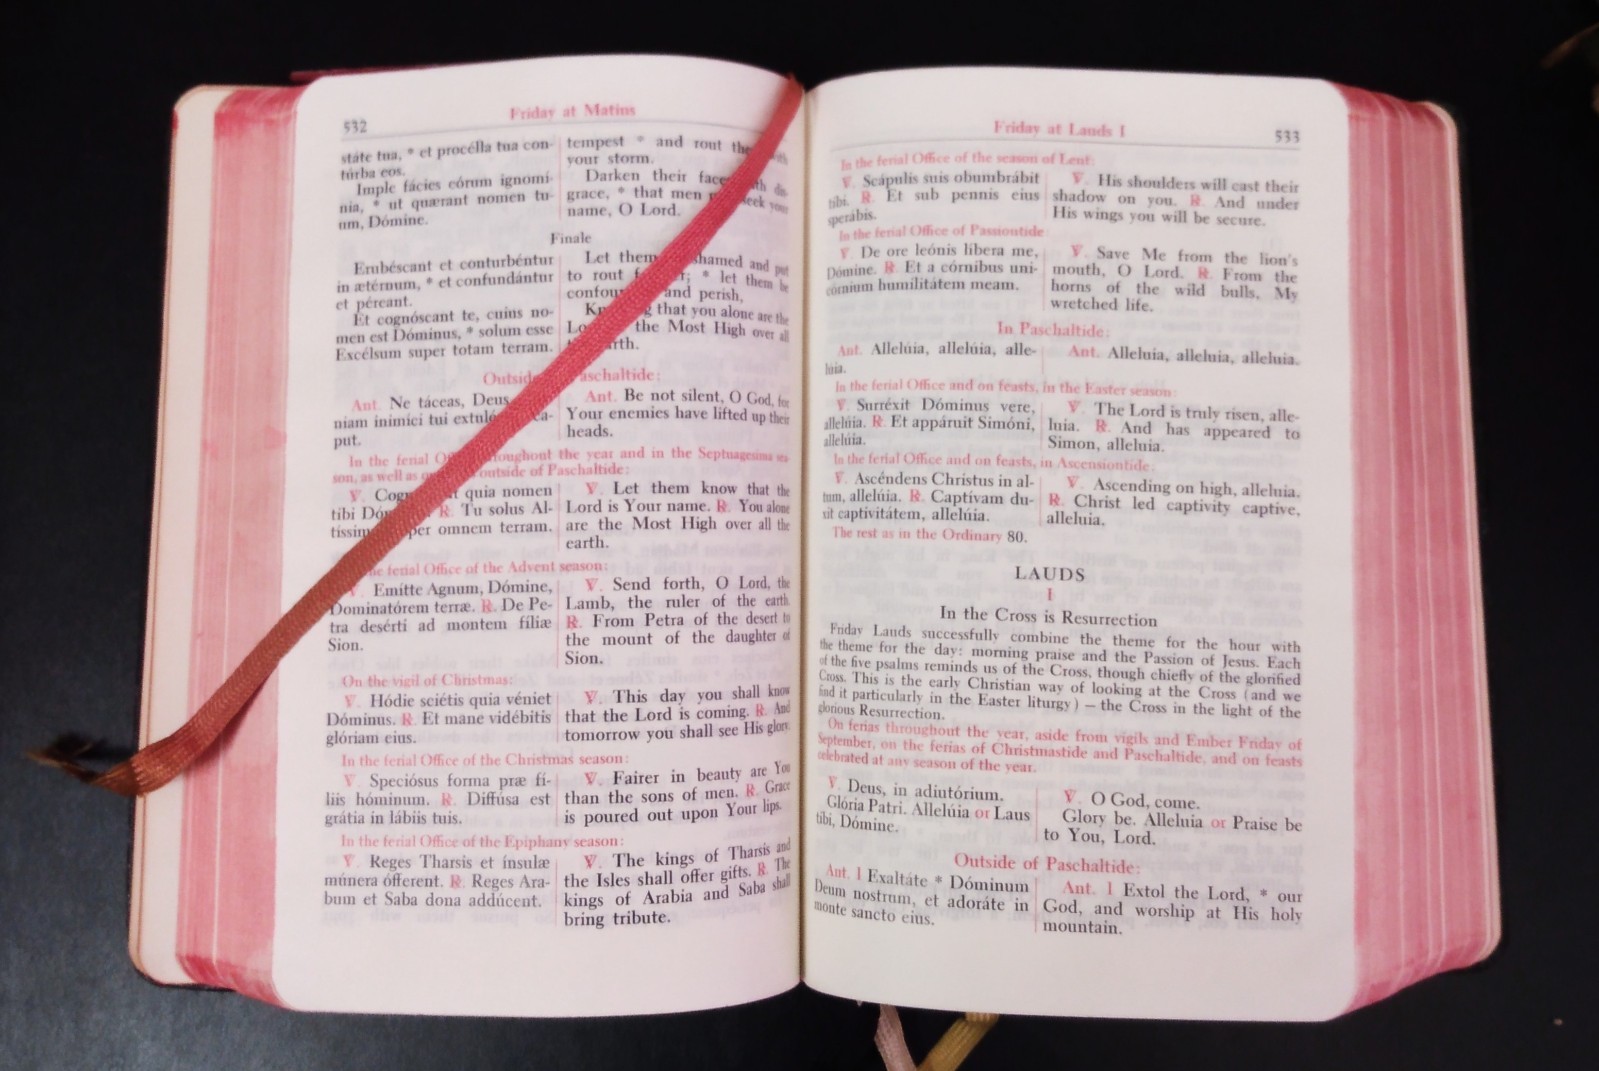 532
Friday at Matins
státe tua, * et procélla tua con-
túrba eos.
Imple fácies eórum ignomí-
nia, * ut quærant nomen tu-
um, Dómine.
tempest * and rout
your storm.
Darken their
grace, * that men
name, O Lord.
Finale
Erubéscant et conturbéntur
in ætérnum, * et confundántur
et péreant.
Et cognóscant te, cuius no-
men est Dóminus, * solum esse
Excélsum super totam terram.
Let them and put
to rout * let them be
and perish,
that you alone are the
the Most High over all
Ant. Ne táceas, Deus,
niam inimíci tui
put.
Ant. Be not silent, O God, for
Your enemies have lifted up their
heads.
In the ferial throughout the year and in the Septuagesima sea-
son, as well as outside of Paschaltide:
℣. quia nomen
tibi ℟. Tu solus Al-
omnem terram.
℣. Let them know that the
Lord is Your name. ℟. You alone
are the Most High over all the
earth.
ferial Office of the Advent season:
℣. Emítte Agnum, Dómine,
Dominatórem terræ. ℟. De Pe-
tra desérti ad montem fíliæ
Sion.
℣. Send forth, O Lord, the
Lamb, the ruler of the earth.
℟. From Petra of the desert to
the mount of the daughter of
Sion.
On the vigil of Christmas:
℣. Hódie sciétis quia véniet
Dóminus. ℟. Et mane vidébitis
glóriam eius.
℣. This day you shall know
that the Lord is coming. ℟. And
tomorrow you shall see His glory.
In the ferial Office of the Christmas season:
℣. Speciósus forma præ fí-
liis hóminum. ℟. Diffúsa est
grátia in lábiis tuis.
℣. Fairer in beauty are You
than the sons of men. ℟. Grace
is poured out upon Your lips.
In the ferial Office of the Epiphany season:
℣. Reges Tharsis et ínsulæ
múnera ófferent. ℟. Reges Ara-
bum et Saba dona addúcent.
℣. The kings of Tharsis and
the Isles shall offer gifts. ℟. The
kings of Arabia and Saba shall
bring tribute.
Friday at Lauds I
533
In the ferial Office of the season of Lent:
℣. Scápulis suis obumbrábit
tibi. ℟. Et sub pennis eius
sperábis.
℣. His shoulders will cast their
shadow on you. ℟. And under
His wings you will be secure.
In the ferial Office of Passiontide:
℣. De ore leónis líbera me,
Dómine. ℟. Et a córnibus uni-
córnium humilitátem meam.
℣. Save Me from the lion's
mouth, O Lord. ℟. From the
horns of the wild bulls, My
wretched life.
In Paschaltide:
Ant. Allelúia, allelúia, alle-
lúia.
Ant. Alleluia, alleluia, alleluia.
In the ferial Office and on feasts, in the Easter season:
℣. Surréxit Dóminus vere,
allelúia. ℟. Et appáruit Simóni,
allelúia.
℣. The Lord is truly risen, alle-
luia. ℟. And has appeared to
Simon, alleluia.
In the ferial Office and on feasts, in Ascensiontide:
℣. Ascéndens Christus in al-
tum, allelúia. ℟. Captívam du-
xit captivitátem, allelúia.
℣. Ascending on high, alleluia.
℟. Christ led captivity captive,
alleluia.
The rest as in the Ordinary 80.
LAUDS
I
In the Cross is Resurrection
Friday Lauds successfully combine the theme for the hour with
the theme for the day: morning praise and the Passion of Jesus. Each
of the five psalms reminds us of the Cross, though chiefly of the glorified
Cross. This is the early Christian way of looking at the Cross (and we
find it particularly in the Easter liturgy) — the Cross in the light of the
glorious Resurrection.
On ferias throughout the year, aside from vigils and Ember Friday of
September, on the ferias of Christmastide and Paschaltide, and on feasts
celebrated at any season of the year.
℣. Deus, in adiutórium.
Glória Patri. Allelúia or Laus
tibi, Dómine.
℣. O God, come.
Glory be. Alleluia or Praise be
to You, Lord.
Outside of Paschaltide:
Ant. 1 Exaltáte * Dóminum
Deum nostrum, et adoráte in
monte sancto eius.
Ant. 1 Extol the Lord, * our
God, and worship at His holy
mountain.